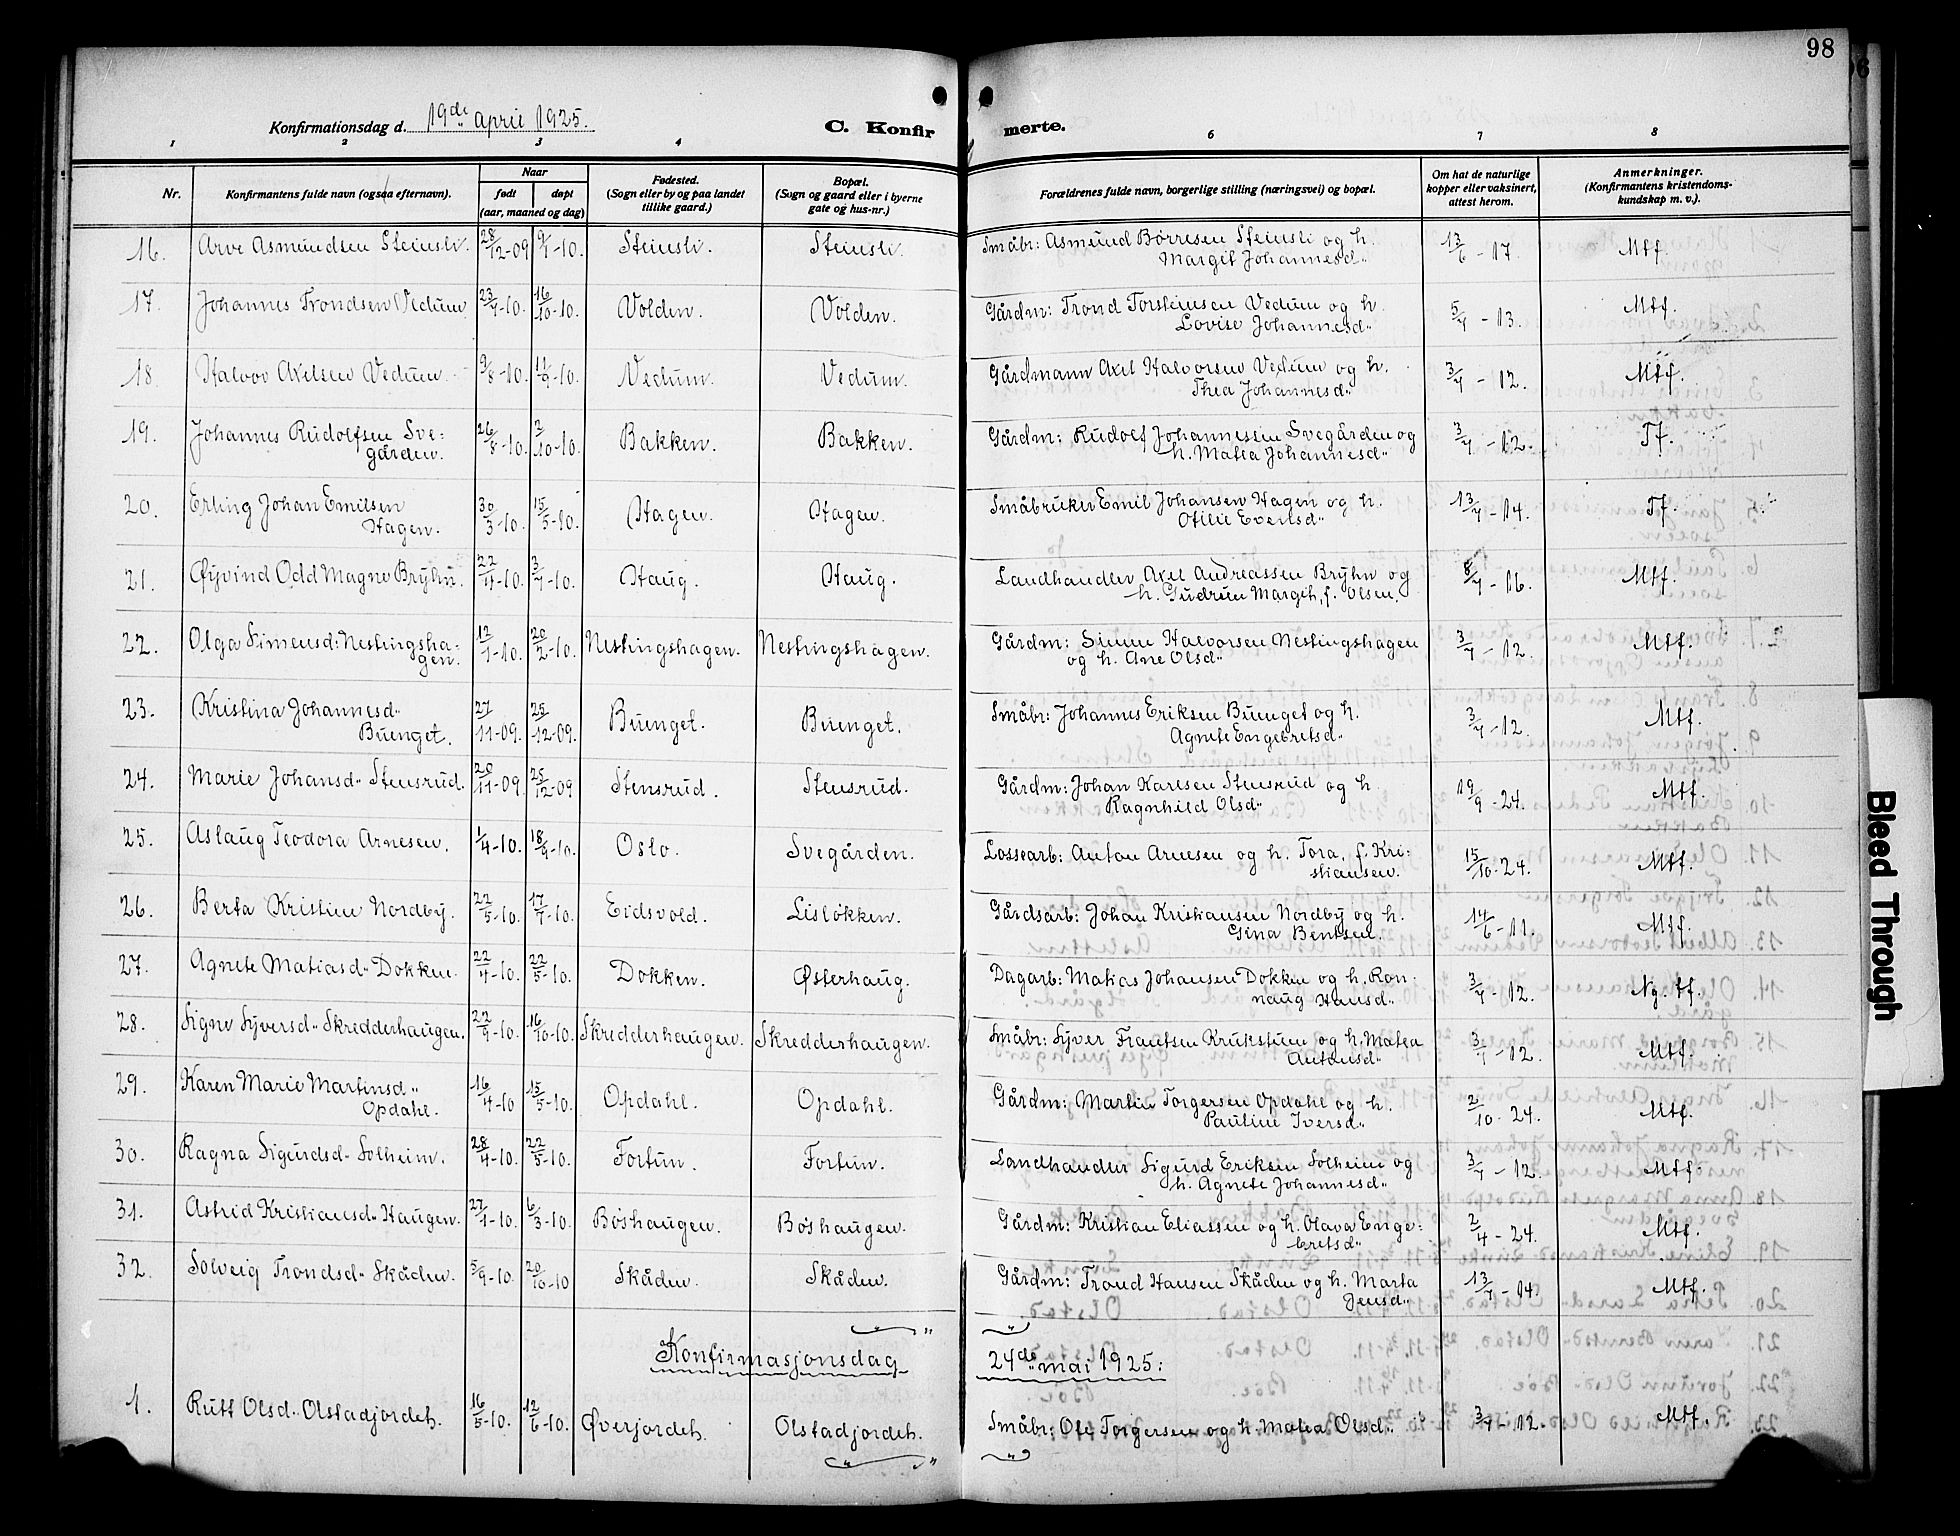 98
Konfirmationsdag d. 19de april 1925.
C. Konfirmerte.
1 2 3 4 6 7 8
Nr.
Konfirmantens fulde navn (ogsaa efternavn).
Naar
født
døpt
(aar, maaned og dag)
Fødested.
(Sogn eller by og paa landet
tillike gaard.)
Bopæl.
(Sogn og gaard eller i byerne
gate og hus-nr.)
Forældrenes fulde navn, borgerlige stilling (næringsvei) og bopæl.
Om hat de naturlige
kopper eller vaksinert,
attest herom.
Anmerkninger.
(Konfirmantens kristendoms-
kundskap m. v.).
16. Arve Asmundsen Steinsli. 28/12-09 9/1-10. Steinsli. Steinsli. Småbr: Asmund Börresen Steinsli og h. 13/6-17. Mtf.
Margit Johannesd"
17. Johannes Trondsen Vedum 23/7-10. 16/10-10. Volden. Volden. Gårdm: Trond Torsteinsen Vedum og h. 5/7-13. Mtf.
Lovise Johannesd"
18. Halvor Axelsen Vedum. 9/8-10. 11/9-10. Vedum. Vedum. Gårdmann Axel Halvorsen Vedum og h. 3/7-12. Mtf.
Thea Johannesd"
19. Johannes Rudolfsen Sve- 26/8-10. 2/10-10. Bakken. Bakken. Gårdm: Rudolf Johannessen Svegården og 3/7-12. Tf.
gården. h. Matea Johannesd"
20. Erling Johan Emilsen 30/3-10. 15/5-10. Hagen. Hagen. Småbruker Emil Johansen Hagen og h. 13/7-14. Tf.
Hagen. Otilie Evensd"
21. Øyvind Odd Magne Bryhn. 22/4-10. 3/7-10. Haug. Haug. Landhandler Axel Andreassen Bryhn og 8/7-16. Mtf.
h. Gudrun Margith, f. Olsen.
22. Olga Simensd: Nestingsha- 12/1-10. 20/2-10. Nestingshagen. Nestingshagen. Gårdm: Simen Halvorsen Nestingshagen 3/7-12. Mtf.
gen. og h. Ane Olsd"
23. Kristina Johannesd" 27/11-09. 25/12-09. Buenget. Buenget. Småbr: Johannes Eriksen Buenget og h. 3/7-12. Mtf.
Buenget. Agnete Engebretsd"
24. Marie Johansd" Stensrud. 20/11-09. 25/12-09 Stensrud. Stensrud. Gårdm: Johan Karlsen Stensrud og h. 19/9-24. Mtf.
Ragnhild Olsd"
25. Aslaug Teodora Arnesen. 1/4-10. 18/9-10. Oslo. Svegården. Lossearb: Anton Arnesen og h. Tora, f. Kri- 15/10-24. Mtf.
stiansen.
26. Berta Kristine Nordby. 22/5-10. 17/7-10. Eidsvold. Lisløkken. Gårdsarb: Johan Kristiansen Nordby og h. 14/6-11. Mtf.
Gina Bentsen.
27. Agnete Matiasd" Dokken. 22/4-10. 22/5-10. Dokken. Østerhaug. Dagarb: Matias Johansen Dokken og h. Ron- 3/7-12. Ng. tf.
naug Hansd"
28. Signe Syversd" Skredderhaugen. 22/9-10. 16/10-10. Skredderhaugen. Skredderhaugen. Småbr: Syver Frantsen Krukstuen og h. Matea 3/7-12. Mtf.
Antonsd"
29. Karen Marie Martinsd" 16/4-10 15/5-10. Opdahl. Opdahl. Gårdm: Martin Torgersen Opdahl og h. 2/10-24. Mtf.
Opdahl. Pauline Iversd"
30. Ragna Sigurdsd" Solheim. 28/4-10. 22/5-10. Fortun. Fortun. Landhandler Sigurd Eriksen Solheim og 3/7-12. Mtf.
h. Agnete Johannesd"
31. Astrid Kristiansd" Haugen. 27/1-10. 6/3-10. Böshaugen. Böshaugen. Gårdm: Kristian Eliassen og h. Olava Enge- 2/4-24. Mtf.
bretsd"
32. Solveig Trondsd" Skåden. 5/9-10. 20/10-10 Skåden. Skåden. Gårdm: Trond Hansen Skåden og h. Marta 13/7-14. Mtf.
Jensd"
Konfirmasjonsdag 24de mai 1925:
1. Rutt Olsd. Olstadjordeh. 16/5-10. 12/6-10. Øverjordeh. Olstadjordeh. Småbr: Ole Torgersen og h. Matea Olsd" 3/7-12. Mtf.
Bleed Through